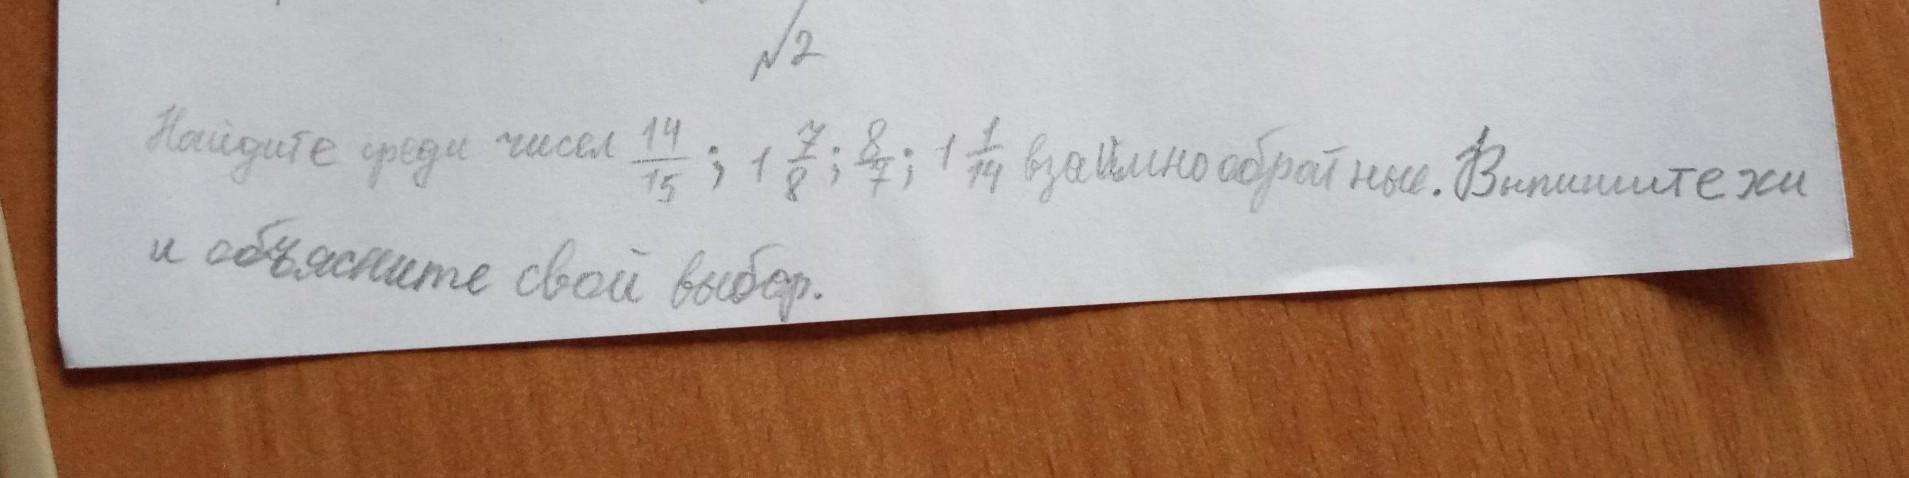 √2
Найдите среди чисел 14/15; 1 7/8; 8/7; 1 1/14 взаимно обратные. Выпишите их
и объясните свой выбор.